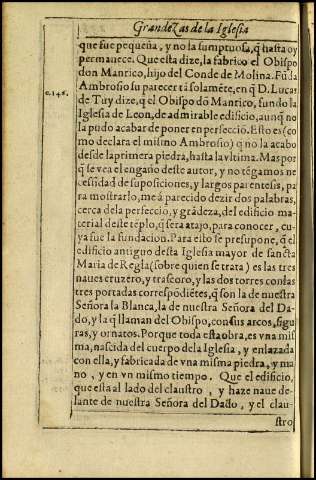 Grandezas de la Iglesia
que fue pequeña, y no la sumptuosa, q̃ hasta oy
permanece. Que esta dize, la fabrico el Obispo
don Manrico, hijo del Conde de Molina. Fũda
Ambrosio su parecer tã solamẽte, en q̃ D. Lucas
c.146.
de Tuy dize, q̃ el Obispo dõ Manrico, fundo la
Iglesia de Leon, de admirable edificio, aunq̃ no
la pudo acabar de poner en perfecció. Esto es (co
mo declara el mismo Ambrosio) q̃ no la acabo
desde la primera piedra, hasta la vltima. Mas por
q̃ se vea el engaño deste autor, y no tẽgamos ne
cessidad de suposiciones, y largos parentesis, pa
ra mostrarlo, me à parecido dezir dos palabras,
cerca de la perfecció, y grãdeza, del edificio ma-
terial deste tẽplo, q̃ sera atajo, para conocer, cu-
ya fue la fundacion. Para esto se presupone, q̃ el
edificio antiguo desta Iglesia mayor de sancta
Maria de Regla (sobre quien se trata) es las tres
naues cruzero, y trascoro, y las dos torres con las
tres portadas correspõdiẽtes, q̃ son la de nuestra
Señora la Blanca, la de nuestra Señora del Da-
do, y la q̃ llaman del Obispo, con sus arcos, figu
ras, y ornatos. Porque toda esta obra, es vna mis
ma, nascida del cuerpo de la Iglesia, y enlazada
con ella, y fabricada de vna misma piedra, y ma
no, y en vn mismo tiempo. Que el edificio,
que esta al lado del claustro, y haze naue de-
lante de nuestra Señora del Dado, y el clau-
stro